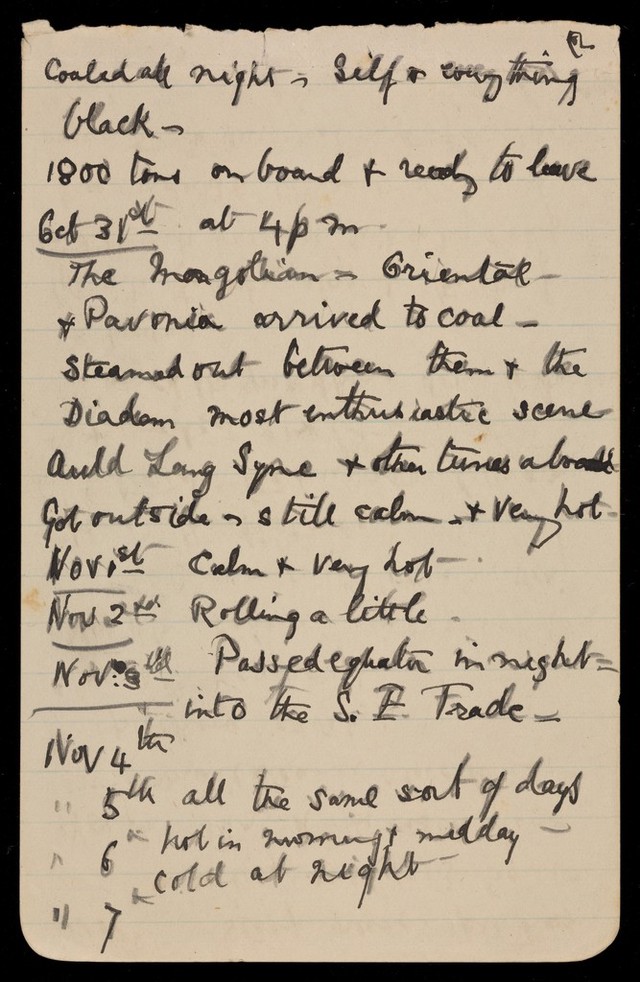 Coaled all night - Self & everything
black -
1800 tons on board & ready to leave
Oct 31st at 4 p m
The Mongolian = Oriental -
& Pavonia arrived to coal -
Steamed out between them & the
Diadem most enthusiastic scene
Auld Lang Syne & other tunes aboard
Got outside - still calm - & very hot
Nov 1st Calm & very hot -
Nov 2nd Rolling a little -
Nov: 3rd Passed equator in night =
into the S. E. Trade -
Nov 4th
" 5th all the same sort of days
" 6" hot in morning & midday -
cold at night -
" 7"